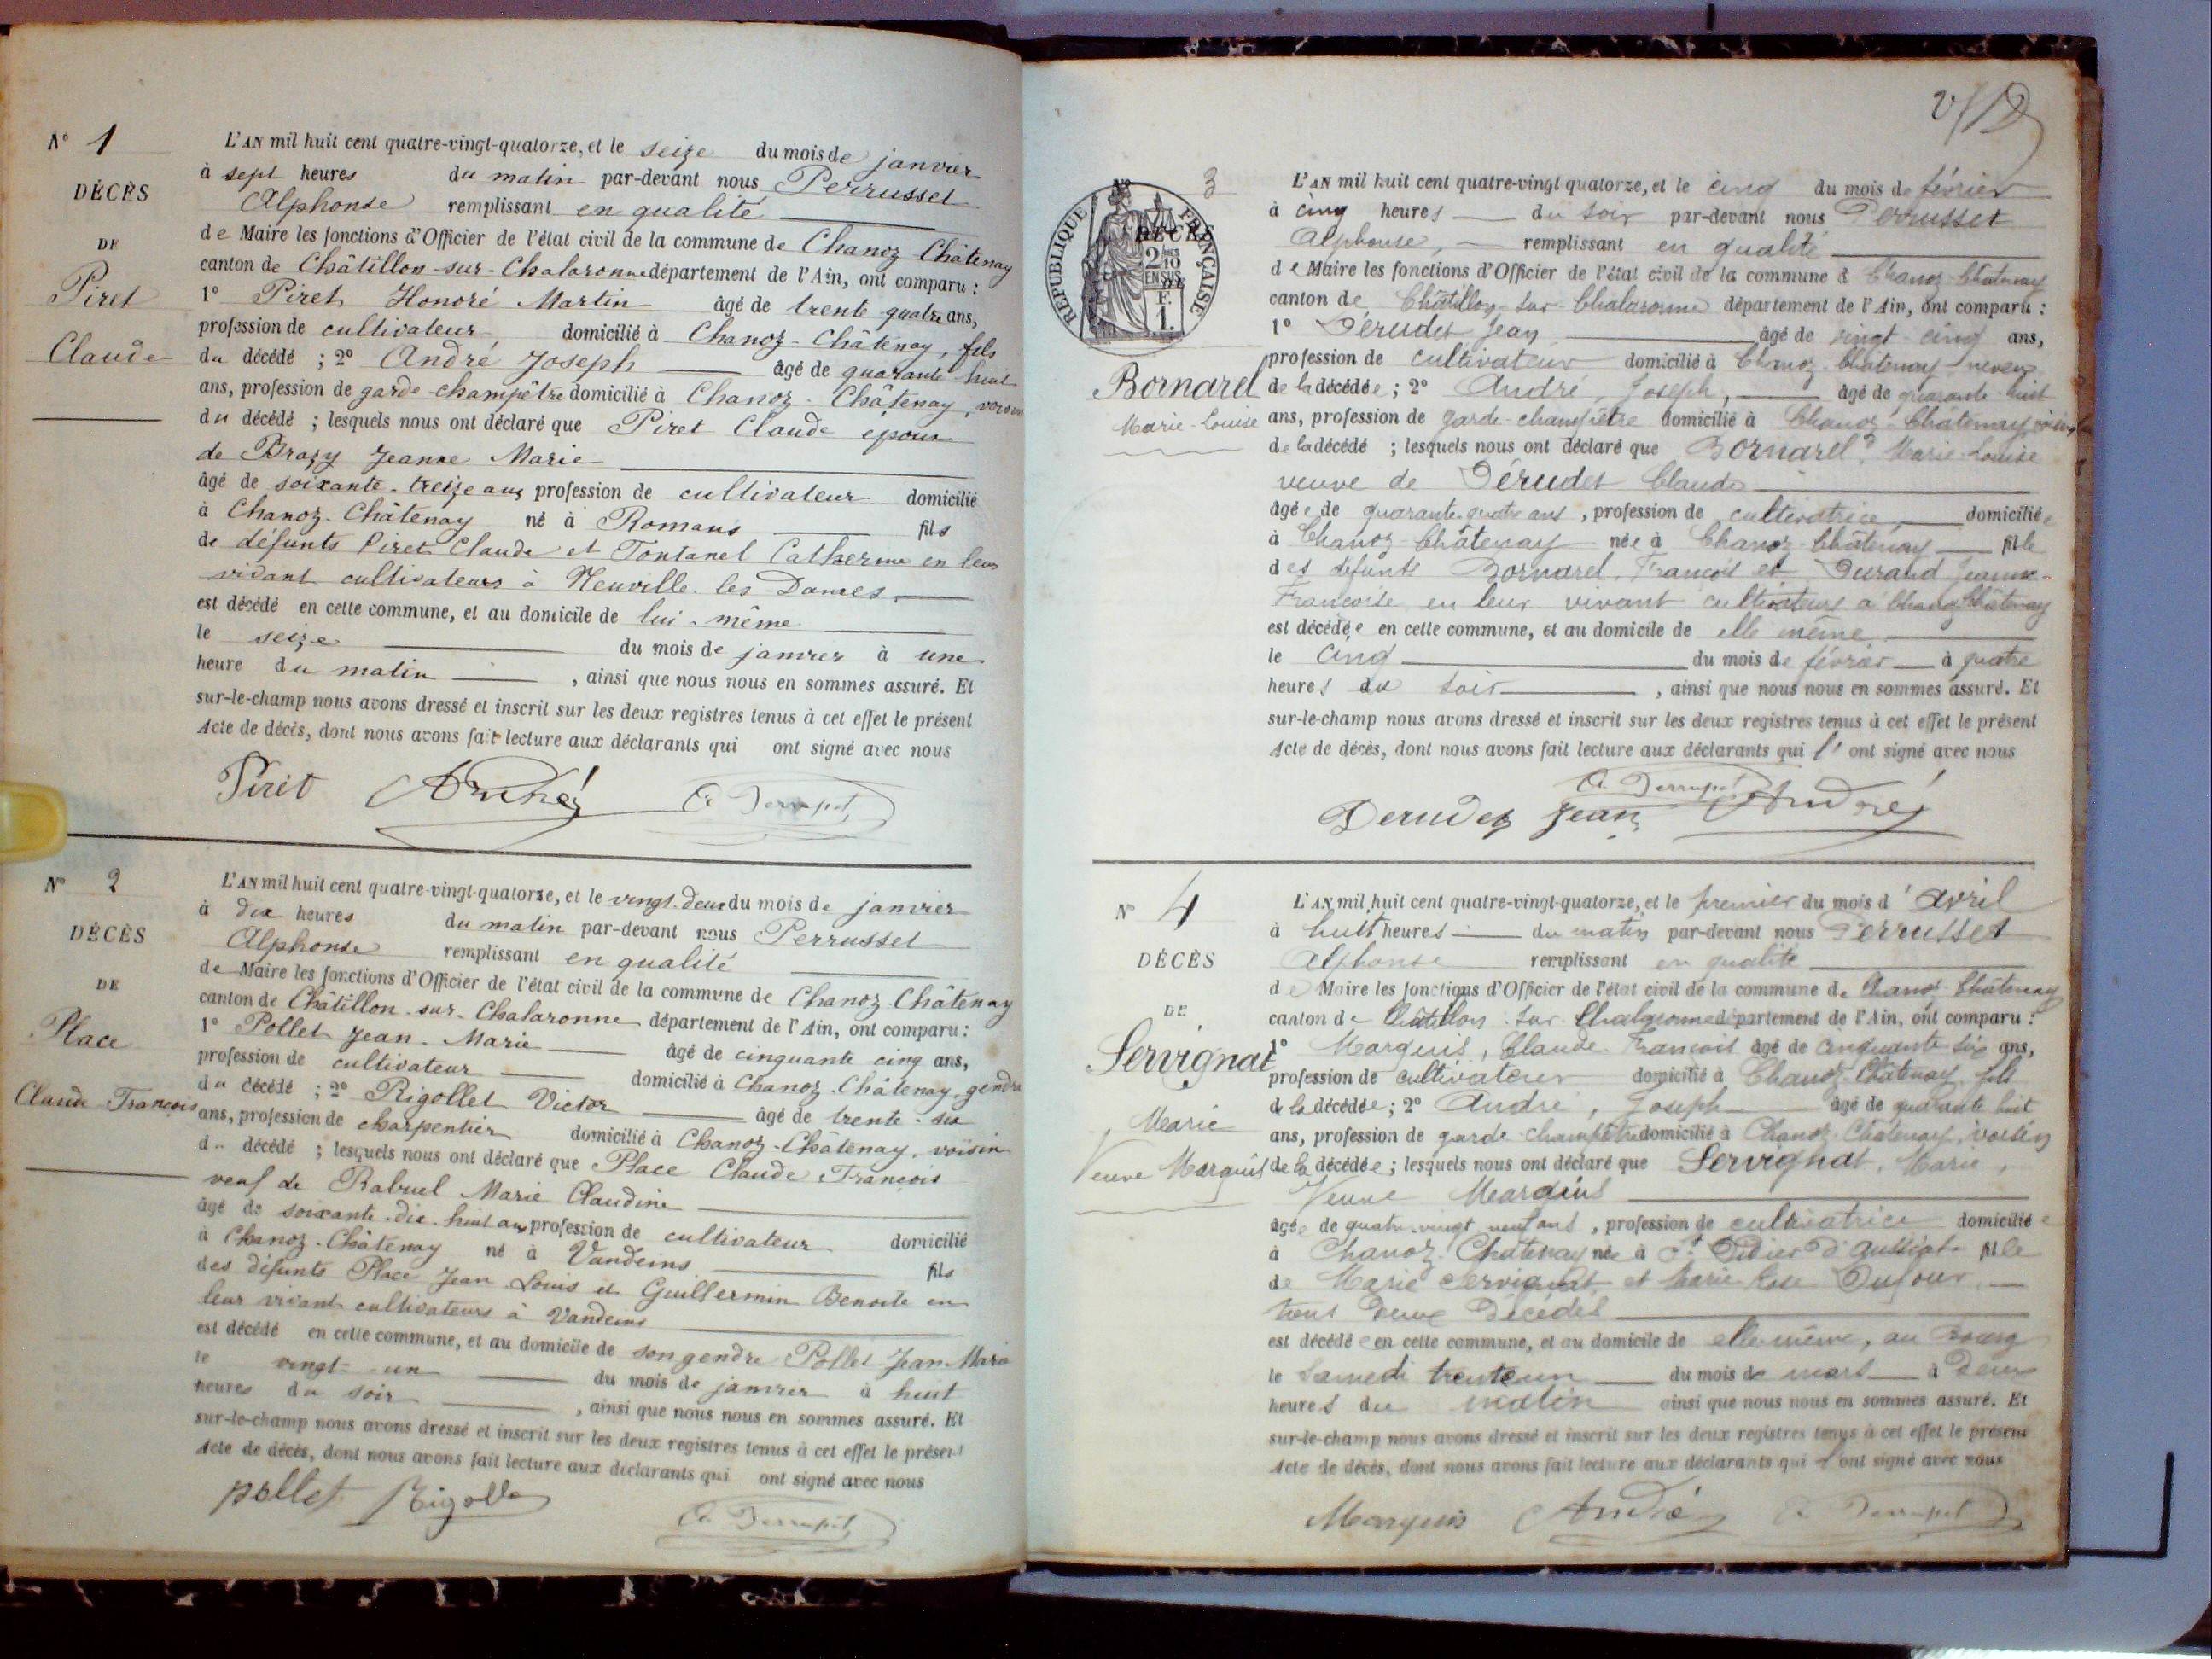 N° 1
DÉCÈS
DE
Piret
Claude
L'AN mil huit cent quatre-vingt-quatorze, et le seize du mois de janvier
à sept heures du matin par-devant nous Perrusset
Alphonse remplissant en qualité
de Maire les fonctions d'Officier de l'état civil de la commune de Chanoz Châtenay
canton de Châtillon-sur-Chalaronne département de l'Ain, ont comparu :
1° Piret Honoré Martin âgé de trente quatre ans,
profession de cultivateur domicilié à Chanoz-Châtenay, fils
du décédé ; 2° André Joseph âgé de quarante huit
ans, profession de garde-champêtre domicilié à Chanoz-Châtenay, voisin
du décédé ; lesquels nous ont déclaré que Piret Claude époux
de Brazy Jeanne Marie
âgé de soixante-treize ans profession de cultivateur domicilié
à Chanoz-Châtenay né à Romans fils
de défunts Piret Claude et Tontanel Catherine en leur
vivant cultivateurs à Neuville-les-Dames
est décédé en cette commune, et au domicile de lui-même
le seize du mois de janvier à une
heure du matin , ainsi que nous nous en sommes assuré. Et
sur-le-champ nous avons dressé et inscrit sur les deux registres tenus à cet effet le présent
Acte de décès, dont nous avons fait lecture aux déclarants qui ont signé avec nous
Piret André
N° 2
DÉCÈS
DE
Place
Claude François
L'AN mil huit cent quatre-vingt-quatorze, et le vingt-deux du mois de janvier
à dix heures du matin par-devant nous Perrusset
Alphonse remplissant en qualité
de Maire les fonctions d'Officier de l'état civil de la commune de Chanoz-Châtenay
canton de Châtillon-sur-Chalaronne département de l'Ain, ont comparu :
1° Pollet Jean-Marie âgé de cinquante cinq ans,
profession de cultivateur domicilié à Chanoz-Châtenay, gendre
du décédé ; 2° Rigollet Victor âgé de trente-six
ans, profession de charpentier domicilié à Chanoz-Châtenay, voisin
d décédé ; lesquels nous ont déclaré que Place Claude François
veuf de Rabuel Marie Claudine
âgé de soixante-dix-huit ans profession de cultivateur domicilié
à Chanoz-Châtenay né à Vandeins fils
des défunts Place Jean Louis et Guillermin Benoite en
leur vivant cultivateurs à Vandeins
est décédé en cette commune, et au domicile de son gendre Pollet Jean-Marie
le vingt-un du mois de janvier à huit
heures du soir , ainsi que nous nous en sommes assuré. Et
sur-le-champ nous avons dressé et inscrit sur les deux registres tenus à cet effet le présent
Acte de décès, dont nous avons fait lecture aux déclarants qui ont signé avec nous
pollet Rigollet
N° 3
RÉPUBLIQUE FRANÇAISE
DÉCÈS
2/10 EN SUS
DE
F. 1.
Bornarel
Marie-Louise
L'AN mil huit cent quatre-vingt quatorze, et le cinq du mois de février
à cinq heures du soir par-devant nous Perrusset
Alphonse, remplissant en qualité
de Maire les fonctions d'Officier de l'état civil de la commune d Chanoz-Châtenay
canton de Châtillon-sur-Chalaronne département de l'Ain, ont comparu :
1° Dérudet Jean âgé de vingt-cinq ans,
profession de cultivateur domicilié à Chanoz-Châtenay neveu
de la décédée ; 2° André, Joseph, âgé de quarante-huit
ans, profession de garde-champêtre domicilié à Chanoz-Châtenay, voisin
de la décédé ; lesquels nous ont déclaré que Bornarel, Marie-Louise
veuve de Dérudet Claude
âgée de quarante-quatre ans, profession de cultivatrice, domiciliée
à Chanoz-Châtenay née à Chanoz-Châtenay fille
des défunts Bornarel, François et Durand Jeanne-
Françoise en leur vivant cultivateurs à Chanoz Châtenay
est décédée en cette commune, et au domicile de elle même
le cinq du mois de février à quatre
heures du soir , ainsi que nous nous en sommes assuré. Et
sur-le-champ nous avons dressé et inscrit sur les deux registres tenus à cet effet le présent
Acte de décès, dont nous avons fait lecture aux déclarants qui l' ont signé avec nous
Derudet Jean André
N° 4
DÉCÈS
DE
Servignat
Marie
Veuve Marquis
L'AN mil huit cent quatre-vingt-quatorze, et le premier du mois d'avril
à huit heures du matin par-devant nous Perrusset
Alphonse remplissant en qualité
de Maire les fonctions d'Officier de l'état civil de la commune de Chanoz-Châtenay
canton de Châtillon-sur-Chalaronne département de l'Ain, ont comparu :
1° Marquis, Claude-François âgé de cinquante six ans,
profession de cultivateur domicilié à Chanoz-Châtenay, fils
de la décédée ; 2° André, Joseph âgé de quarante huit
ans, profession de garde-champêtre domicilié à Chanoz-Châtenay, voisin
de la décédée ; lesquels nous ont déclaré que Servignat, Marie,
Veuve Marquis
âgée de quatre-vingt neuf ans, profession de cultivatrice domiciliée
à Chanoz-Châtenay née à St Didier d'Aussiat fille
de Marie Servignat et Marie Rose Dufour
tous deux décédés
est décédée en cette commune, et au domicile de elle-même, au Bourg
le samedi trente un du mois de mars à deux
heures du matin ainsi que nous nous en sommes assuré. Et
sur-le-champ nous avons dressé et inscrit sur les deux registres tenus à cet effet le présent
Acte de décès, dont nous avons fait lecture aux déclarants qui l'ont signé avec nous
Marquis André